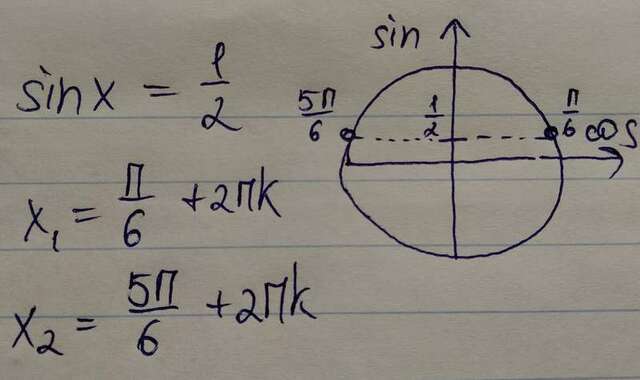 sin x = 1/2
x₁ = π/6 + 2πk
x₂ = 5π/6 + 2πk
sin
5π/6
1/2
π/6
cos